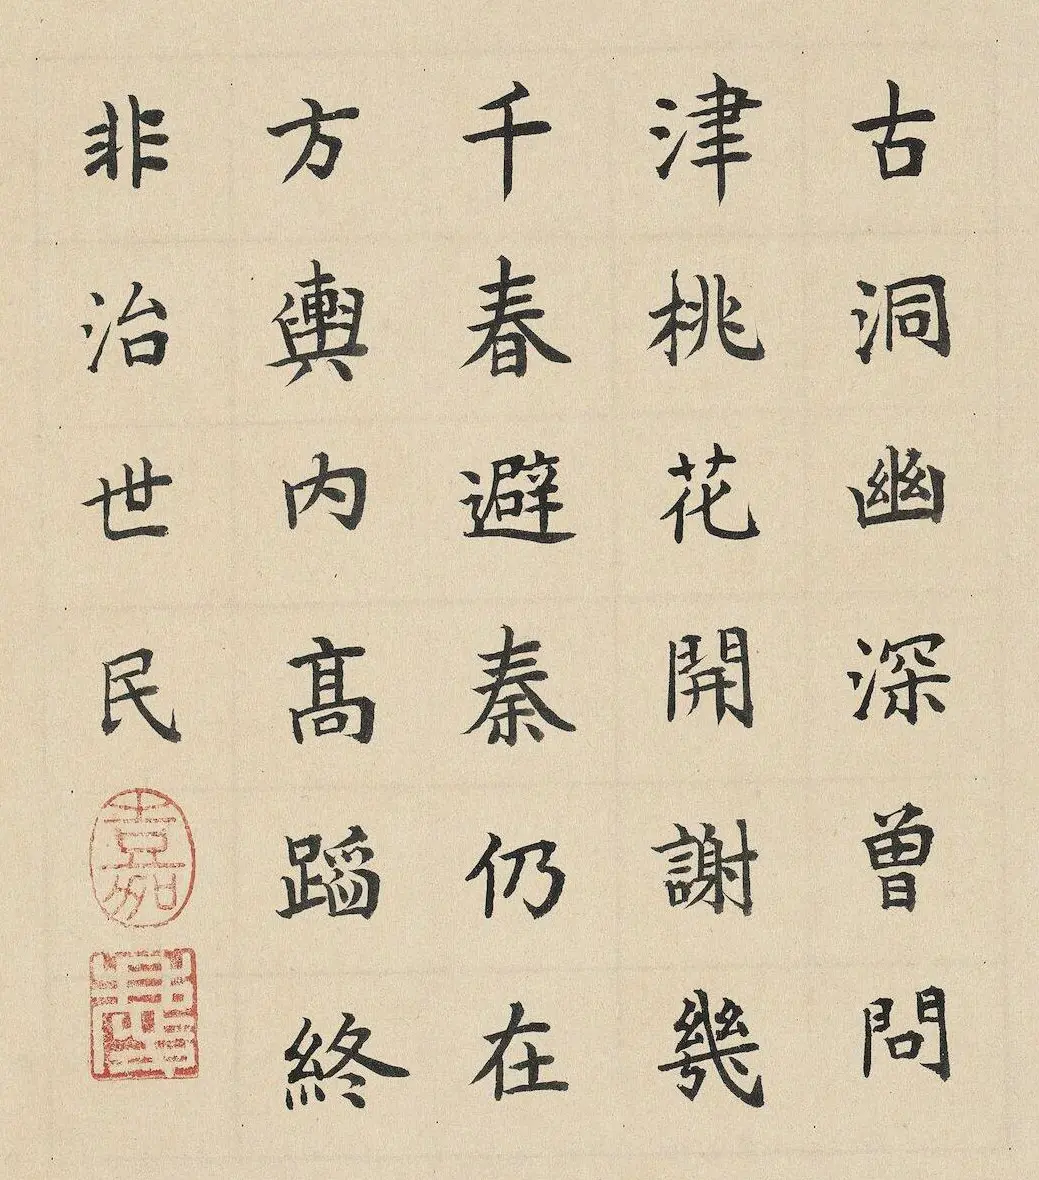 古洞幽深曾問
津桃花開謝幾
千春避秦仍在
方輿内髙蹈終
非治世民
嘉